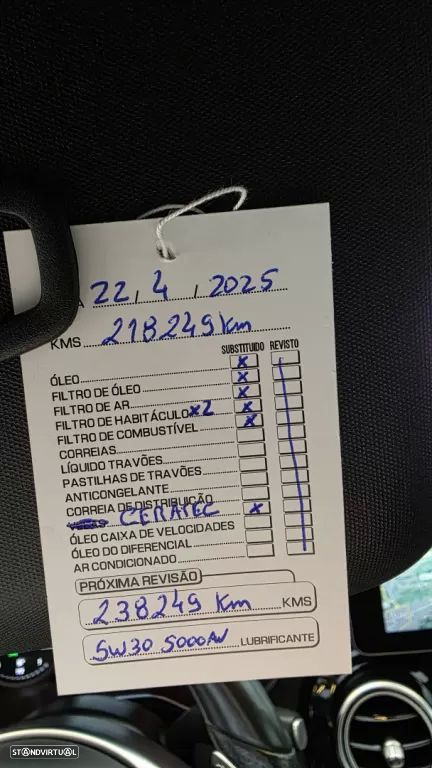 A 22 / 4 / 2025
KMS 218249 km
SUBSTITUIDO REVISTO
ÓLEO x
FILTRO DE ÓLEO x
FILTRO DE AR x
FILTRO DE HABITÁCULO x2 x
FILTRO DE COMBUSTÍVEL x
CORREIAS
LÍQUIDO TRAVÕES
PASTILHAS DE TRAVÕES
ANTICONGELANTE
CORREIA DE DISTRIBUIÇÃO
CERATEC x
ÓLEO CAIXA DE VELOCIDADES
ÓLEO DO DIFERENCIAL
AR CONDICIONADO
PRÓXIMA REVISÃO
238249 Km KMS
5W30 LUBRIFICANTE
STANDVIRTUAL